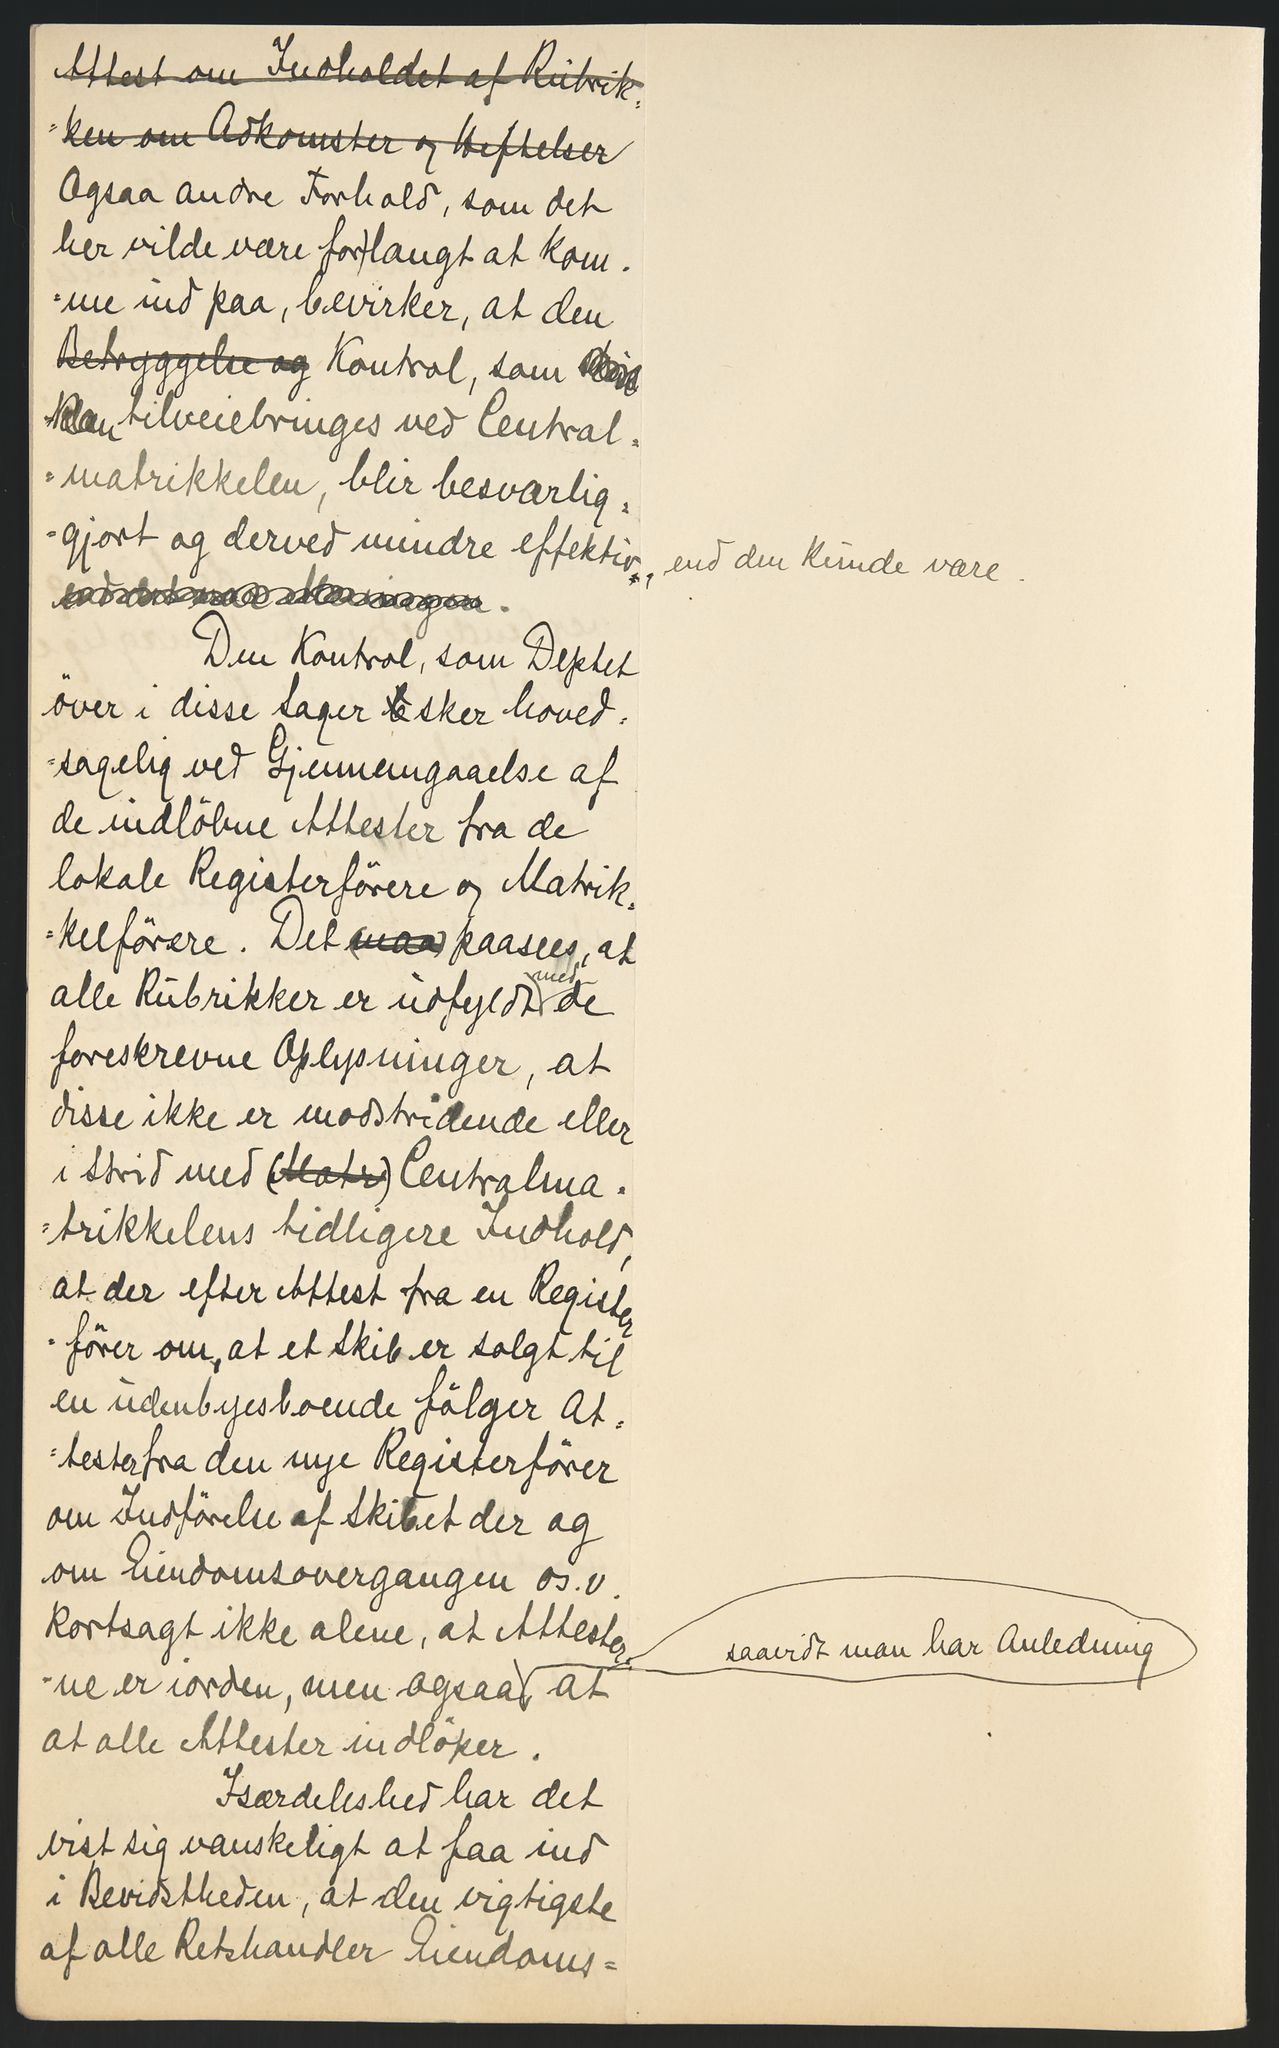 Attest om Indholdet af Rubrik-
-ken om Adkomster og Heftelser
Ogsaa andre Forhold, som det
her vilde være for langt at kom-
-me ind paa, bevirker, at den
Betryggelse og Kontrol, som
kan tilveiebringes ved Central-
-matrikkelen, blir besværlig-
-gjort og derved mindre effektiv, end den kunde være.
end det var Meningen.
Den Kontrol, som Deptet
över i disse Sager sker hoved-
-sagelig ved Gjennemgaaelse af
de indlöbne Attester fra de
lokale Registerförere og Matrik-
-kelförere. Det (maa) paasees, at
alle Rubrikker er udfyldt med de
foreskrevne Oplysninger, at
disse ikke er modstridende eller
i Strid med (Matr) Centralma-
-trikkelens tidligere Indhold,
at der efter Attest fra en Register
-förer om, at et Skib er solgt til
en udenbyesboende fölger At-
-tester fra den nye Registerförer
om Indförelse af Skibet der og
om Eiendomsovergangen os.v.
kortsagt ikke alene, at Attester-
-ne er iorden, men ogsaa, at
saavidt man har Anledning
at alle Attester indlöper.
Isærdeleshed har det
vist sig vanskeligt at faa ind
i Bevidstheden, at den vigtigste
af alle Retshandler Eiendoms-